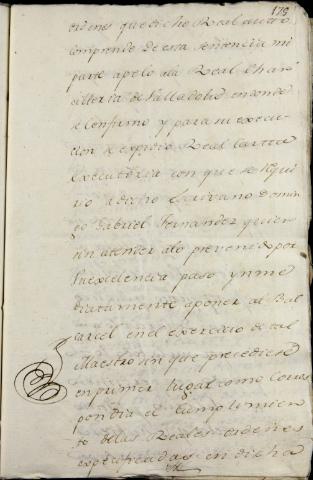 178
ordenes que dicho Real auto
comprende de esta sentencia mi
parte apelo ala Real Chan
cilleria de Valladolid en donde
se Confirmo y para su execu
cion se expidio Real Carta
Executoria con que se requi
rio a dicho Escrivano Domin
go Gabriel Fernandez quien
sin atender alo prevenido por
su excelencia paso ynme
diatamente aponer al Bal
carcel en el exercicio de tal
Maestro sin que precediese
en primer lugar como corres
pondia el cumplimien
to delas Reales ordenes
expresadas en dicha